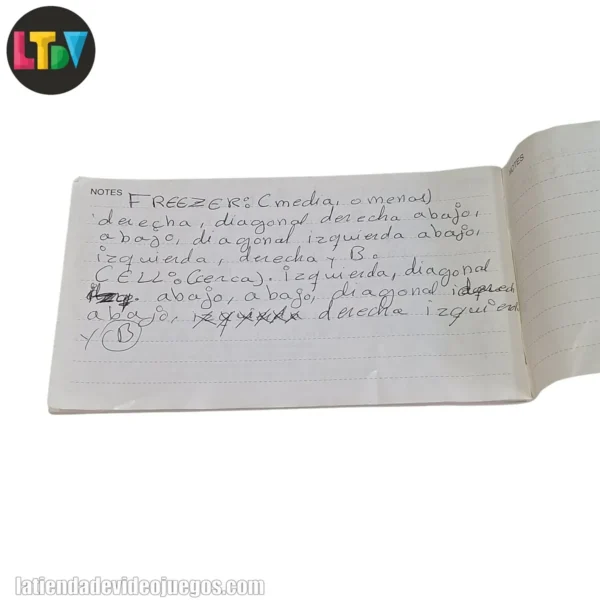 LTDV
NOTES
NOTES
FREEZER: (media, o menos)
derecha, diagonal derecha abajo,
abajo, diagonal izquierda abajo,
izquierda, derecha y B.
CELL: (cerca). izquierda, diagonal
izq. abajo, abajo, diagonal derech
abajo, derecha izquierda
y B
latiendadevideojuegos.com